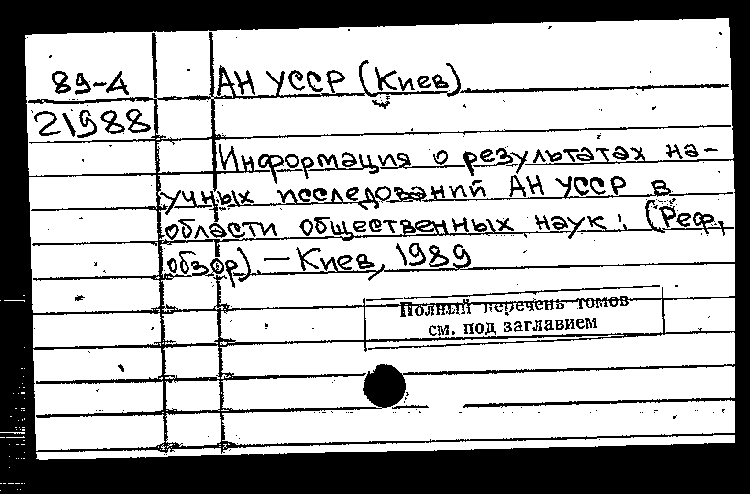 89-4
21988
АН УССР (Киев).
Информация о результатах на-
учных исследований АН УССР в
области общественных наук: (Реф.
обзор). — Киев, 1989
Полный перечень томов
см. под заглавием